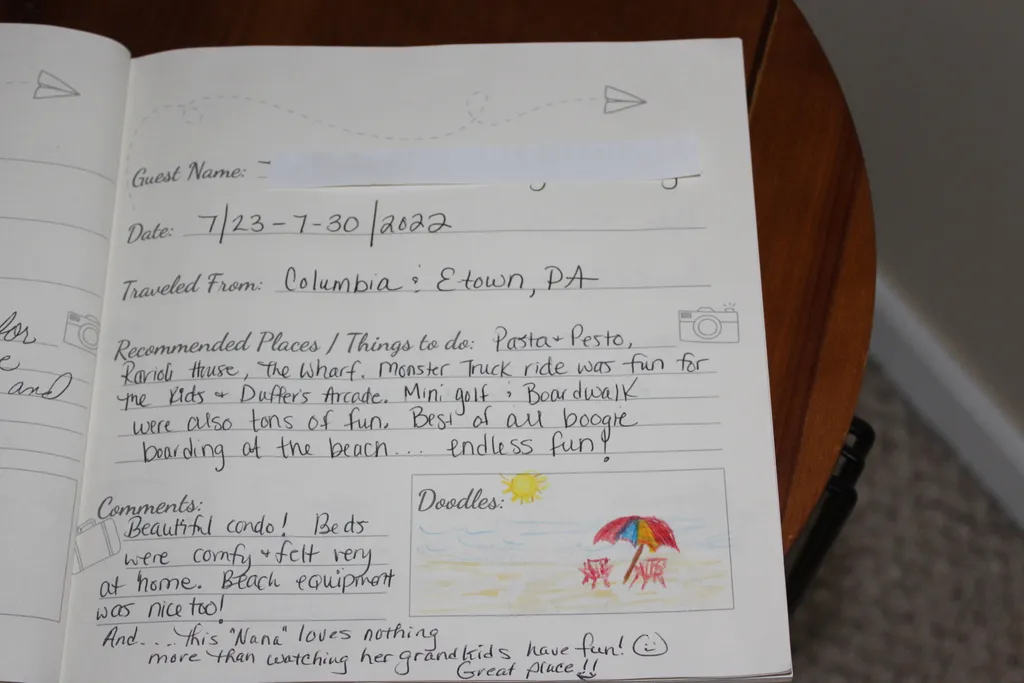 Guest Name:
Date: 7/23-7-30/2022
Traveled From: Columbia & Etown, PA
Recommended Places / Things to do: Pasta & Pesto,
Ravioli House, The Wharf. Monster Truck ride was fun for
the kids & Duffer's Arcade. Mini golf & Boardwalk
were also tons of fun. Best of all boogie
boarding at the beach... endless fun!
Comments:
Beautiful condo! Beds
were comfy & felt very
at home. Beach equipment
was nice too!
And.... this "Nana" loves nothing
more than watching her grandkids have fun! ☺
Great place!!
Doodles:
for
and